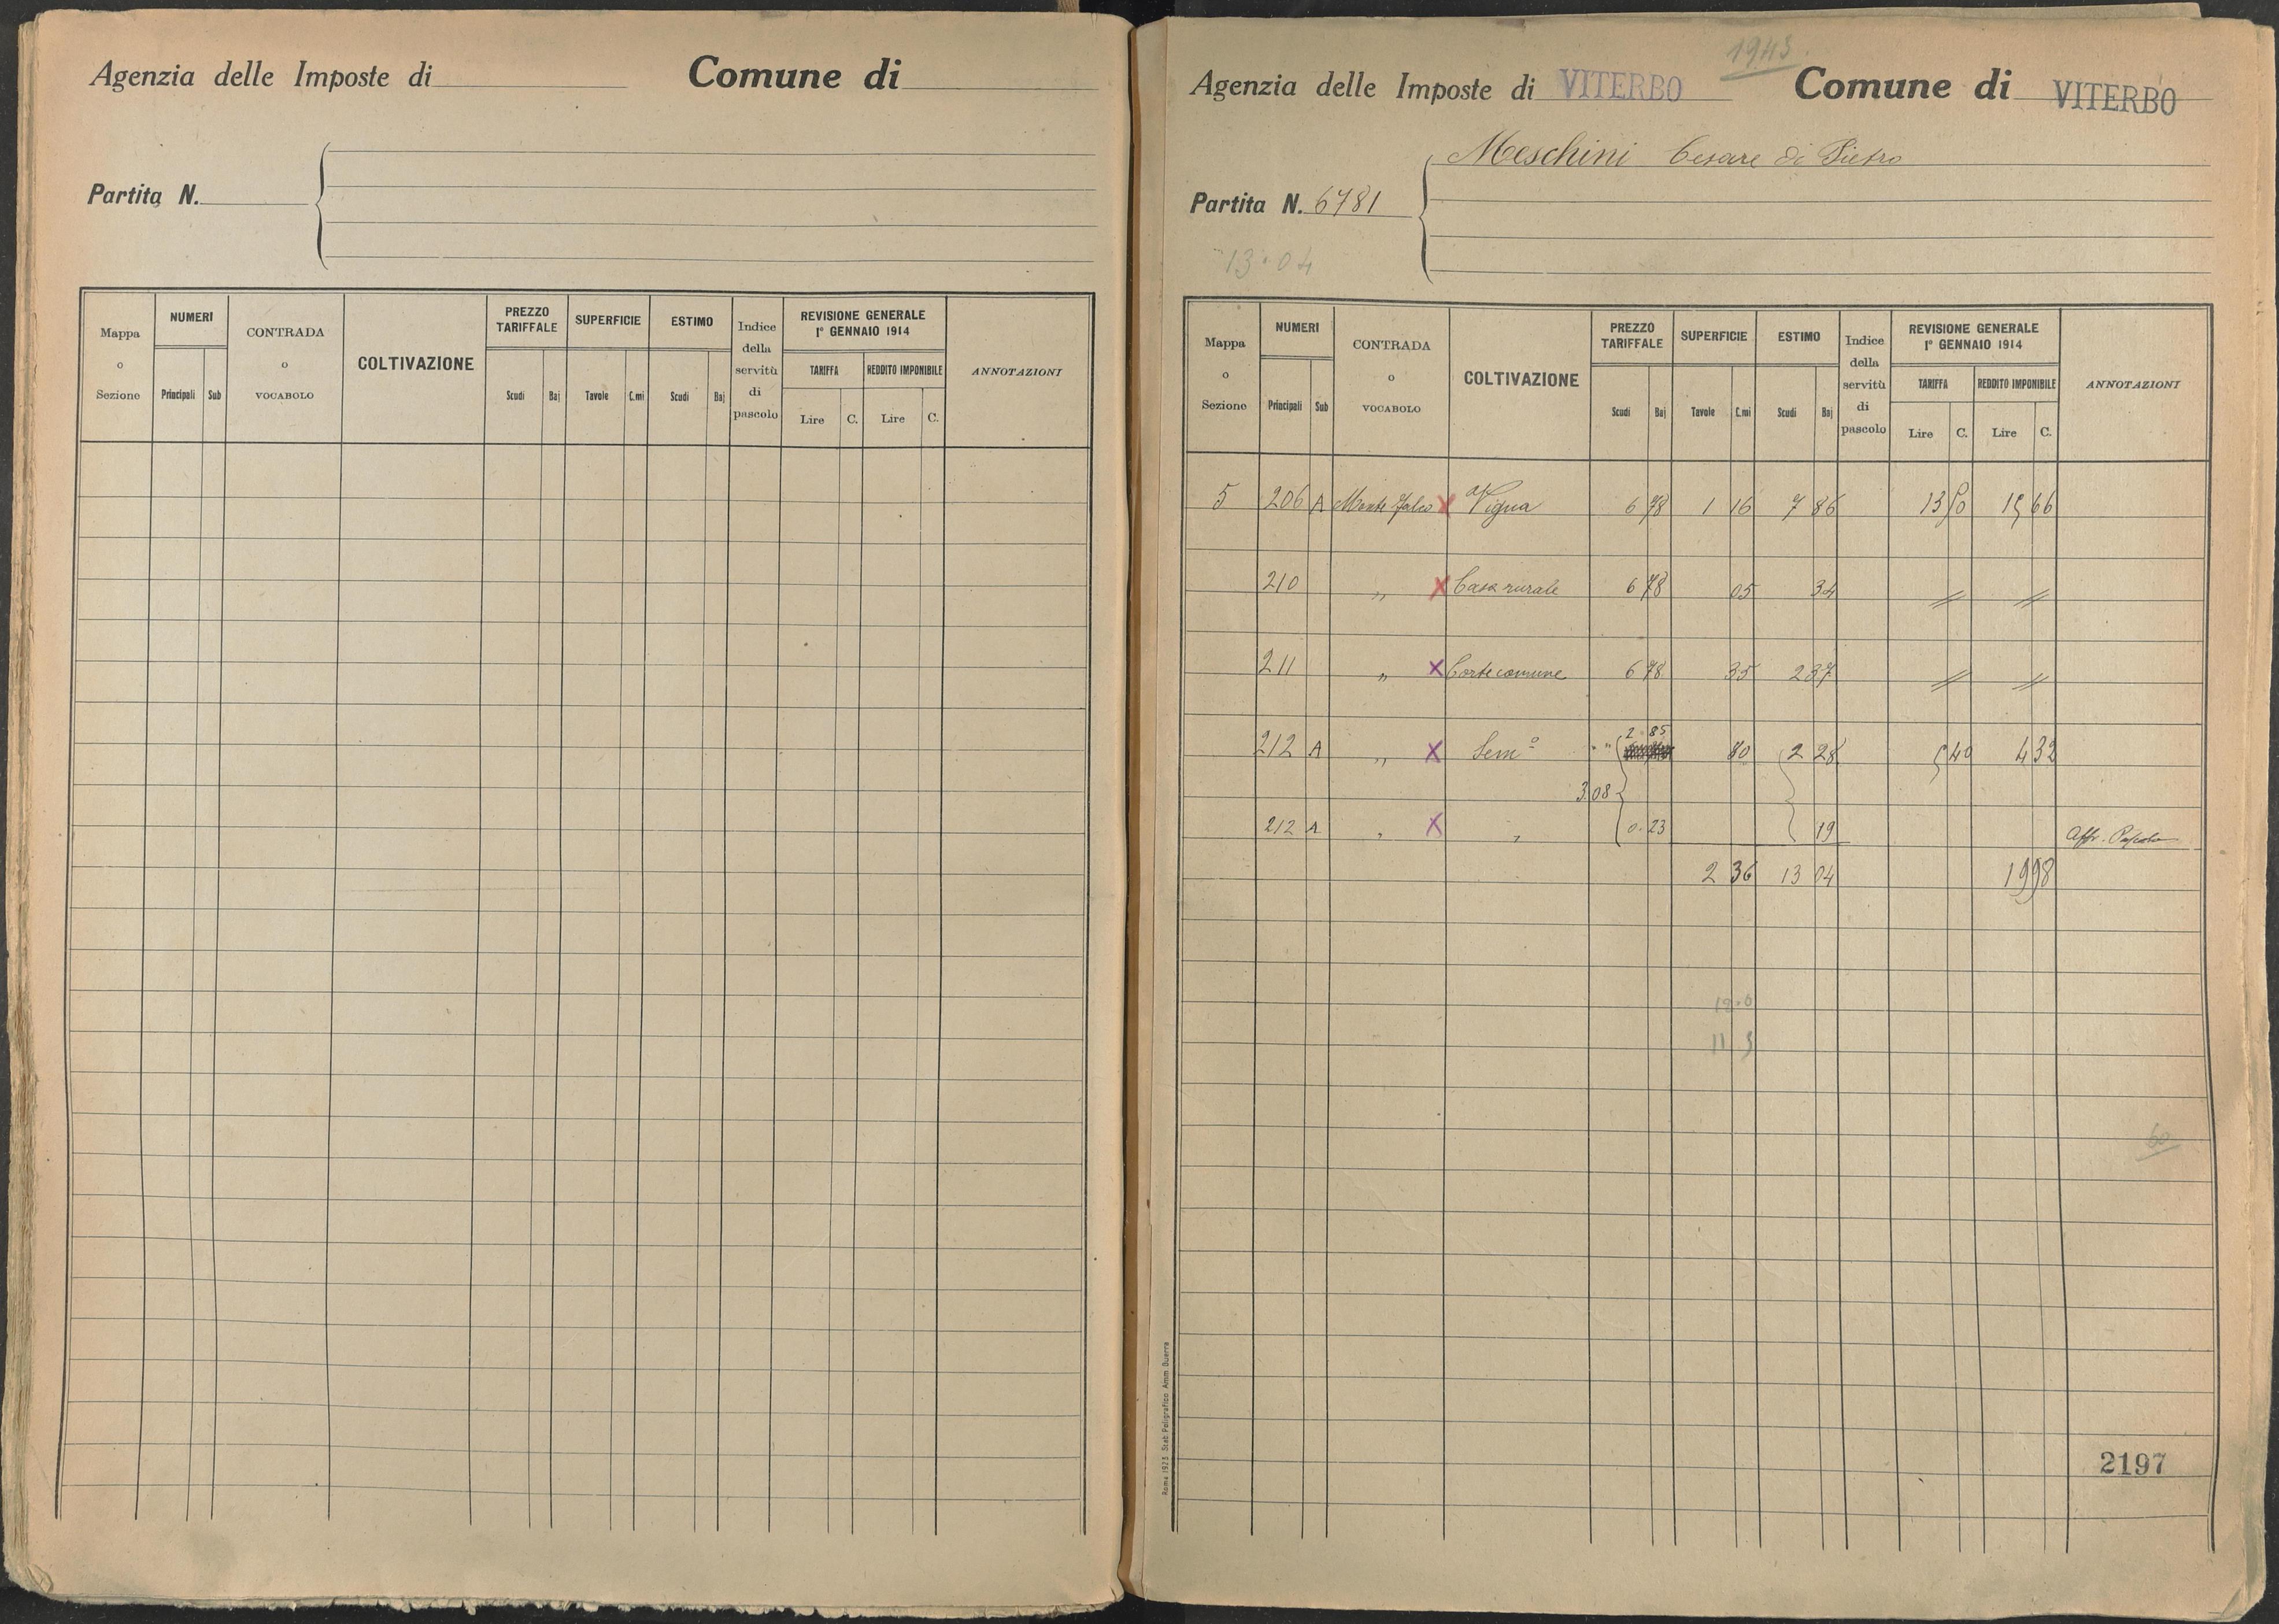 Agenzia delle Imposte di
Comune di
Partita N.
Mappa o Sezione
NUMERI
Principali
Sub
CONTRADA o VOCABOLO
COLTIVAZIONE
PREZZO TARIFFALE
Scudi
Baj
SUPERFICIE
Tavole
C.mi
ESTIMO
Scudi
Baj
Indice della servitù di pascolo
REVISIONE GENERALE
1° GENNAIO 1914
TARIFFA
REDDITO IMPONIBILE
Lire
C.
Lire
C.
ANNOTAZIONI
1943
Agenzia delle Imposte di VITERBO
Comune di VITERBO
Meschini Cesare di Pietro
Partita N. 6781
13.04
Mappa o Sezione
NUMERI
Principali
Sub
CONTRADA o VOCABOLO
COLTIVAZIONE
PREZZO TARIFFALE
Scudi
Baj
SUPERFICIE
Tavole
C.mi
ESTIMO
Scudi
Baj
Indice della servitù di pascolo
REVISIONE GENERALE
1° GENNAIO 1914
TARIFFA
REDDITO IMPONIBILE
Lire
C.
Lire
C.
ANNOTAZIONI
5 206 A Monte X Vigna 6 78 1 16 7 86 13 50 15 66
210 " X Casa rurale 6 78 05 34 // //
211 " X Corte comune 6 78 35 2 37 // //
2.85
212 A " X Sem° 80 2 28 5 40 4 32
3.08
212 A " X " 0.23 19 Affr. Pascolo
2 36 13 04 19 98
60
2197
Roma 1923 Stab Poligrafico Amm Guerra